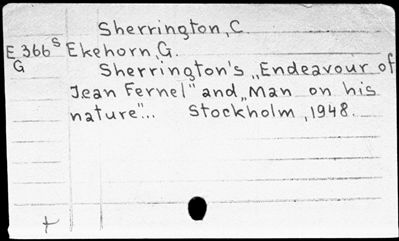 Sherrington, C.
E 366 s Ekehorn, G.
G Sherrington's „Endeavour of
Jean Fernel" and „Man on his
nature"... Stockholm, 1948.